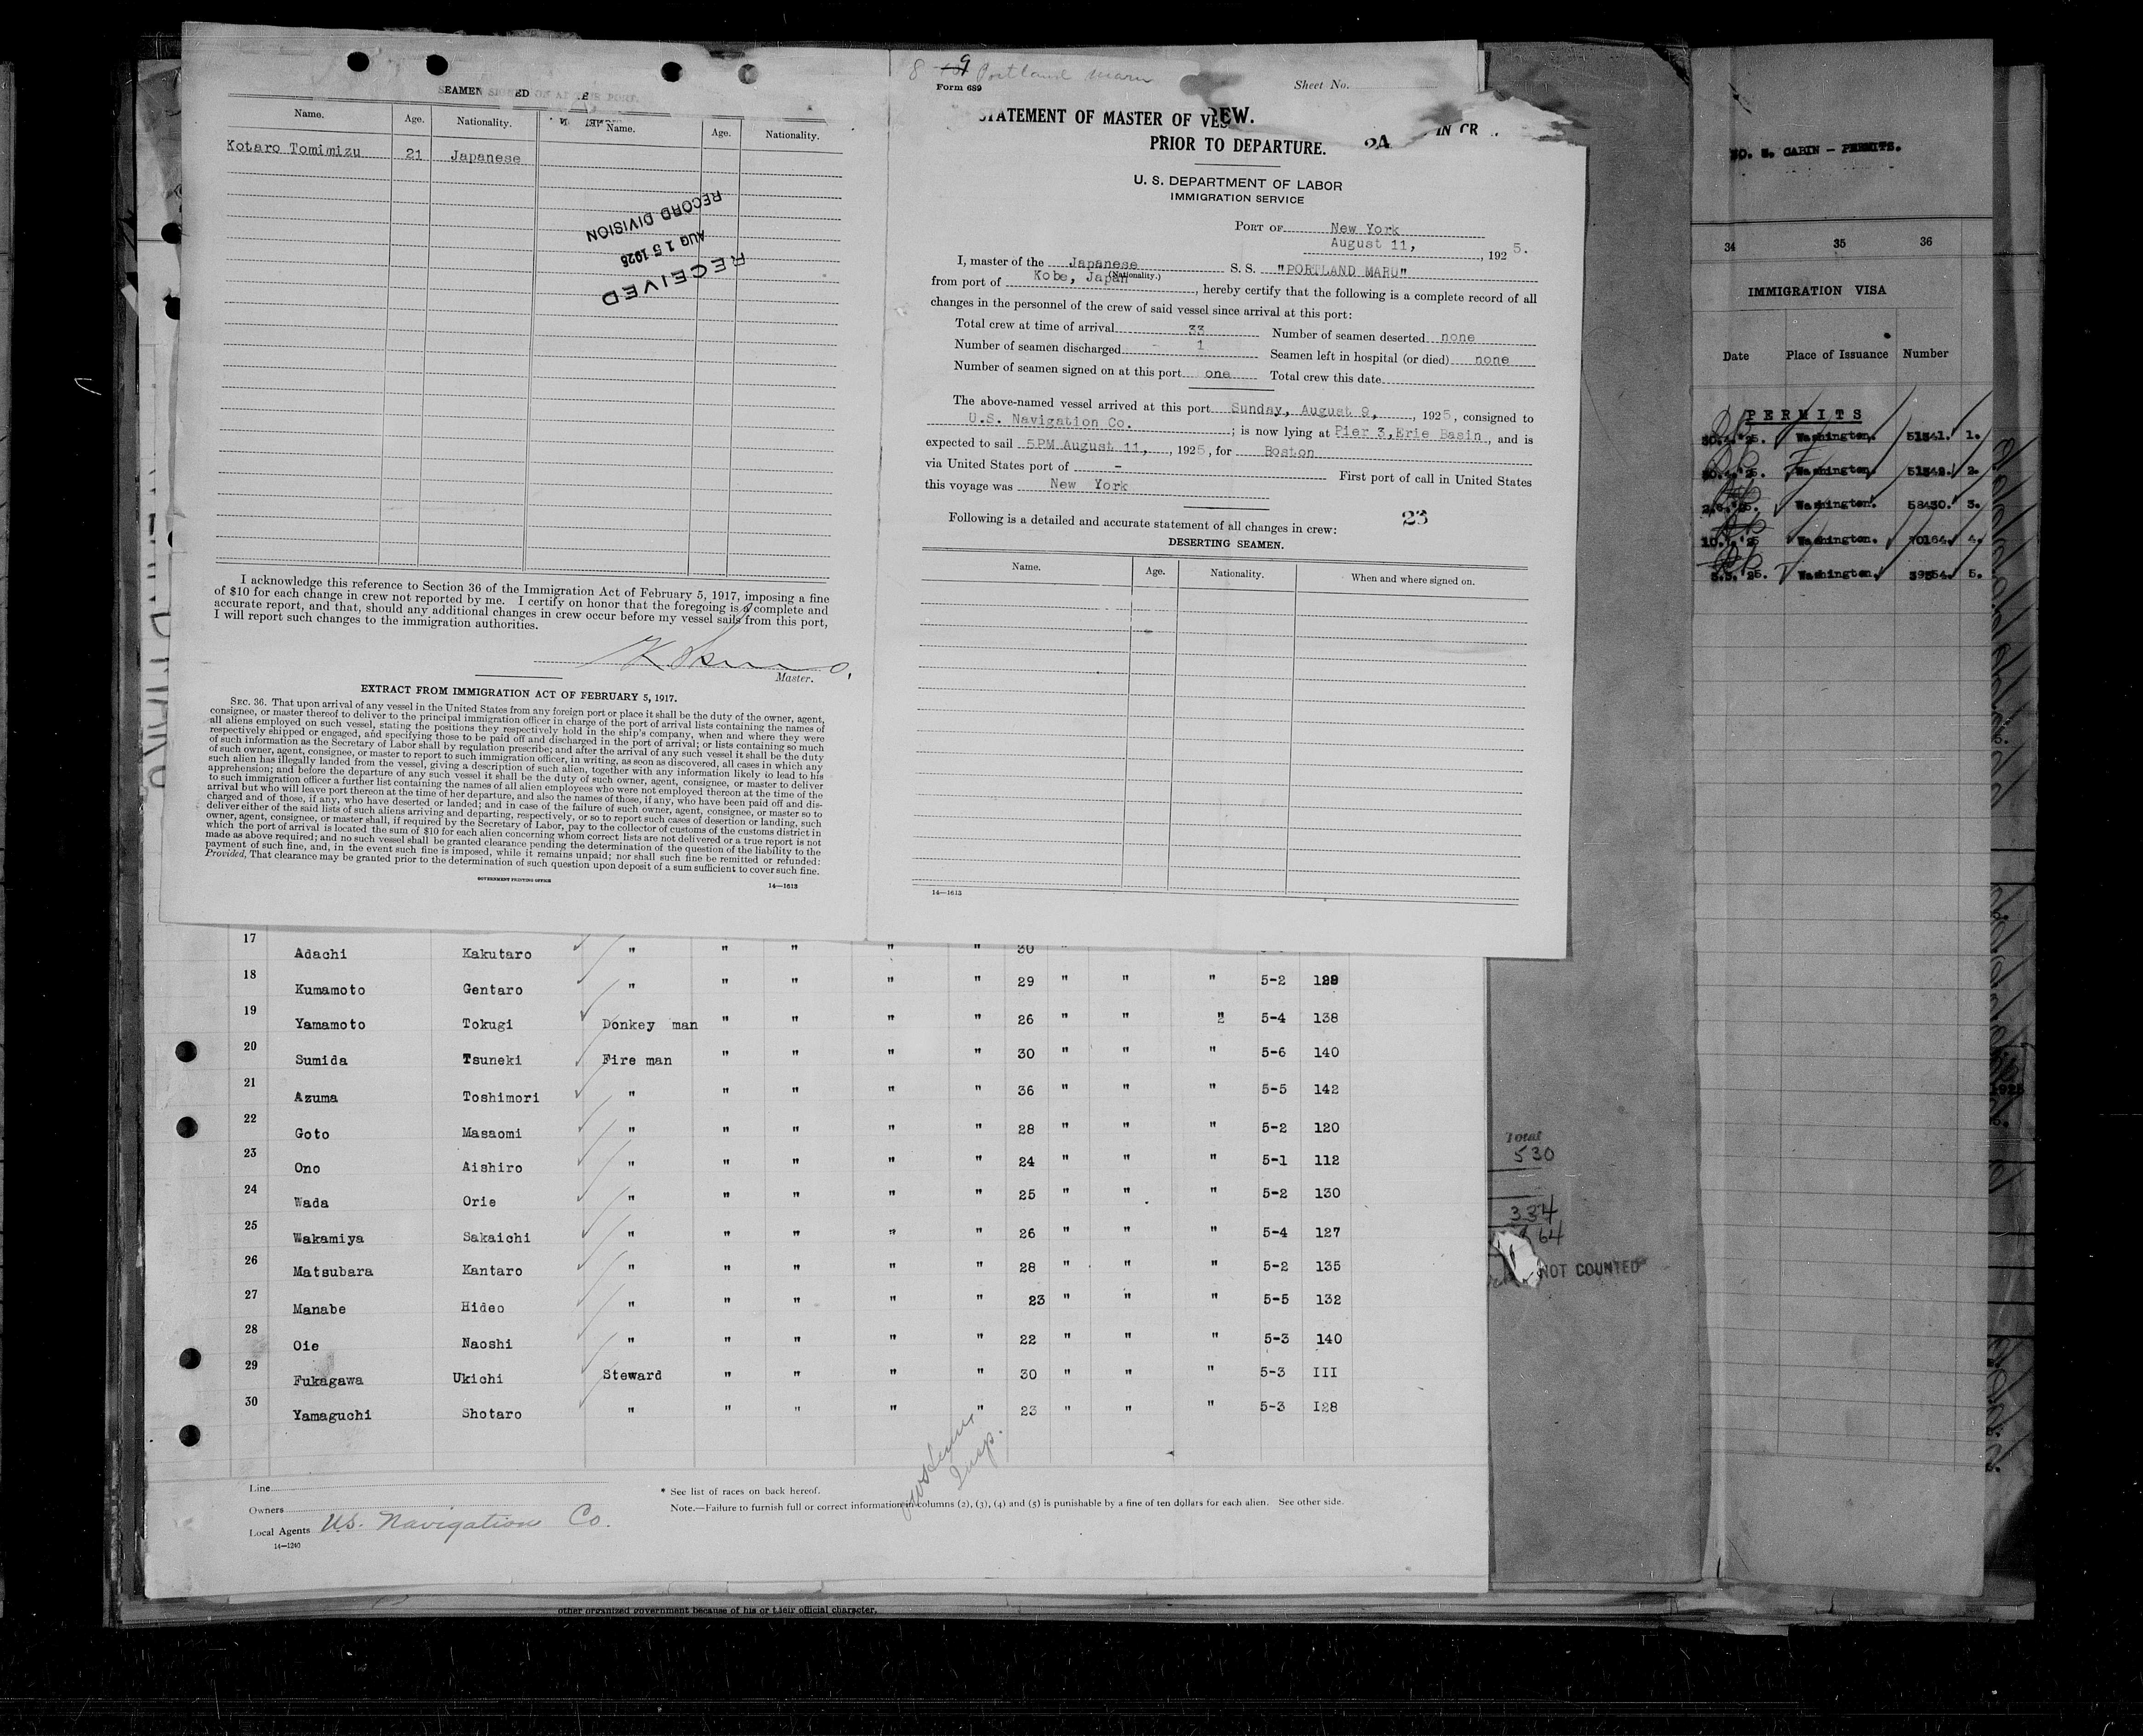 SEAMEN
Name. Age. Nationality. Name. Age. Nationality.
Kotaro Tomimizu 21 Japanese
RECEIVED
AUG 15 1925
RECORD DIVISION
I acknowledge this reference to Section 36 of the Immigration Act of February 5, 1917, imposing a fine
of $10 for each change in crew not reported by me. I certify on honor that the foregoing is a complete and
accurate report, and that, should any additional changes in crew occur before my vessel sails from this port,
I will report such changes to the immigration authorities.
Master.
EXTRACT FROM IMMIGRATION ACT OF FEBRUARY 5, 1917.
SEC. 36. That upon arrival of any vessel in the United States from any foreign port or place it shall be the duty of the owner, agent,
consignee, or master thereof to deliver to the principal immigration officer in charge of the port of arrival lists containing the names of
all aliens employed on such vessel, stating the positions they respectively hold in the ship's company, when and where they were
respectively shipped or engaged, and specifying those to be paid off and discharged in the port of arrival; or lists containing so much
of such information as the Secretary of Labor shall by regulation prescribe; and after the arrival of any such vessel it shall be the duty
of such owner, agent, consignee, or master to report to such immigration officer, in writing, as soon as discovered, all cases in which any
such alien has illegally landed from the vessel, giving a description of such alien, together with any information likely to lead to his
apprehension; and before the departure of any such vessel it shall be the duty of such owner, agent, consignee, or master to deliver
to such immigration officer a further list containing the names of all alien employees who were not employed thereon at the time of the
arrival but who will leave port thereon at the time of her departure, and also the names of those, if any, who have been paid off and dis-
charged and of those, if any, who have deserted or landed; and in case of the failure of such owner, agent, consignee, or master so to
deliver either of the said lists of such aliens arriving and departing, respectively, or so to report such cases of desertion or landing, such
owner, agent, consignee, or master shall, if required by the Secretary of Labor, pay to the collector of customs of the customs district in
which the port of arrival is located the sum of $10 for each alien concerning whom correct lists are not delivered or a true report is not
made as above required; and no such vessel shall be granted clearance pending the determination of the question of the liability to the
payment of such fine, and, in the event such fine is imposed, while it remains unpaid; nor shall such fine be remitted or refunded:
Provided, That clearance may be granted prior to the determination of such question upon deposit of a sum sufficient to cover such fine.
GOVERNMENT PRINTING OFFICE
14—1613
8 9 Portland Maru
Form 689
Sheet No.
STATEMENT OF MASTER OF VES EW.
IN CR
PRIOR TO DEPARTURE. 24
U. S. DEPARTMENT OF LABOR
IMMIGRATION SERVICE
PORT OF New York
August 11, , 1925.
I, master of the Japanese S. S. "PORTLAND MARU"
(Nationality.)
from port of Kobe, Japan , hereby certify that the following is a complete record of all
changes in the personnel of the crew of said vessel since arrival at this port:
Total crew at time of arrival 33 Number of seamen deserted none
Number of seamen discharged 1 Seamen left in hospital (or died) none
Number of seamen signed on at this port one Total crew this date
The above-named vessel arrived at this port Sunday, August 9, , 1925, consigned to
U.S. Navigation Co. ; is now lying at Pier 3, Erie Basin , and is
expected to sail 5PM August 11, , 1925, for Boston
via United States port of - First port of call in United States
this voyage was New York
Following is a detailed and accurate statement of all changes in crew: 23
DESERTING SEAMEN.
Name. Age. Nationality. When and where signed on.
14—1613
17 Adachi Kakutaro " " " " " 30
18 Kumamoto Gentaro " " " " " 29 " " " 5-2 129
19 Yamamoto Tokugi Donkey man " " " " 26 " " " 5-4 138
20 Sumida Tsuneki Fire man " " " " 30 " " " 5-6 140
21 Azuma Toshimori " " " " " 36 " " " 5-5 142
22 Goto Masaomi " " " " " 28 " " " 5-2 120
23 Ono Aishiro " " " " " 24 " " " 5-1 112
24 Wada Orie " " " " " 25 " " " 5-2 130
25 Wakamiya Sakaichi " " " " " 26 " " " 5-4 127
26 Matsubara Kantaro " " " " " 28 " " " 5-2 135
27 Manabe Hideo " " " " " 23 " " " 5-5 132
28 Oie Naoshi " " " " " 22 " " " 5-3 140
29 Fukagawa Ukichi Steward " " " " 30 " " " 5-3 III
30 Yamaguchi Shotaro " " " " " 23 " " " 5-3 I28
Insp.
Line
Owners
Local Agents U.S. Navigation Co.
14—1240
* See list of races on back hereof.
Note.—Failure to furnish full or correct information in columns (2), (3), (4) and (5) is punishable by a fine of ten dollars for each alien. See other side.
other organized government because of his or their official character.
Total
530
334
64
NOT COUNTED
NO. 2. CABIN – PERMITS.
34 35 36
IMMIGRATION VISA
Date Place of Issuance Number
PERMITS
Washington. 51541. 1.
Washington. 51542. 2.
Washington. 58430. 3.
Washington. 70164. 4.
Washington. 39554. 5.
1925